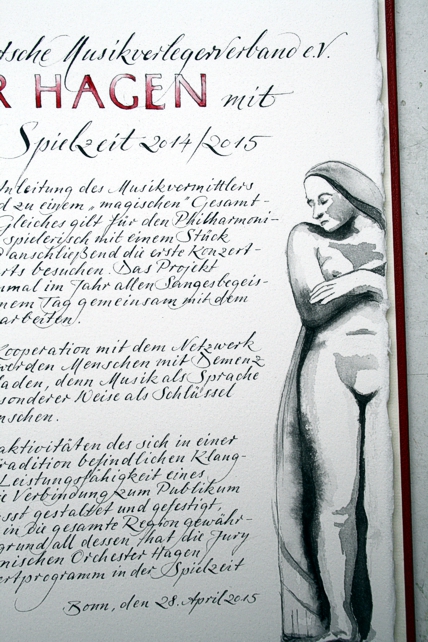 tsche Musikverlegerverband e.V.
R HAGEN mit
Spielzeit 2014/2015
nleitung des Musikvermittlers
d zu einem „magischen" Gesamt-
Gleiches gilt für den Philharmoni-
spielerisch mit einem Stück
d anschließend die erste Konzert-
rts besuchen. Das Projekt
nmal im Jahr allen Sangesbegeis-
nem Tag gemeinsam mit dem
arbeiten.
Kooperation mit dem Netzwerk
werden Menschen mit Demenz
laden, denn Musik als Sprache
sonderer Weise als Schlüssel
nschen.
aktivitäten des sich in einer
radition befindlichen Klang-
Leistungsfähigkeit eines
ie Verbindung zum Publikum
sst gestaltet und gefestigt,
in die gesamte Region gewähr-
grund all dessen hat die Jury
nischen Orchester Hagen
ertprogramm in der Spielzeit
Bonn, den 28. April 2015